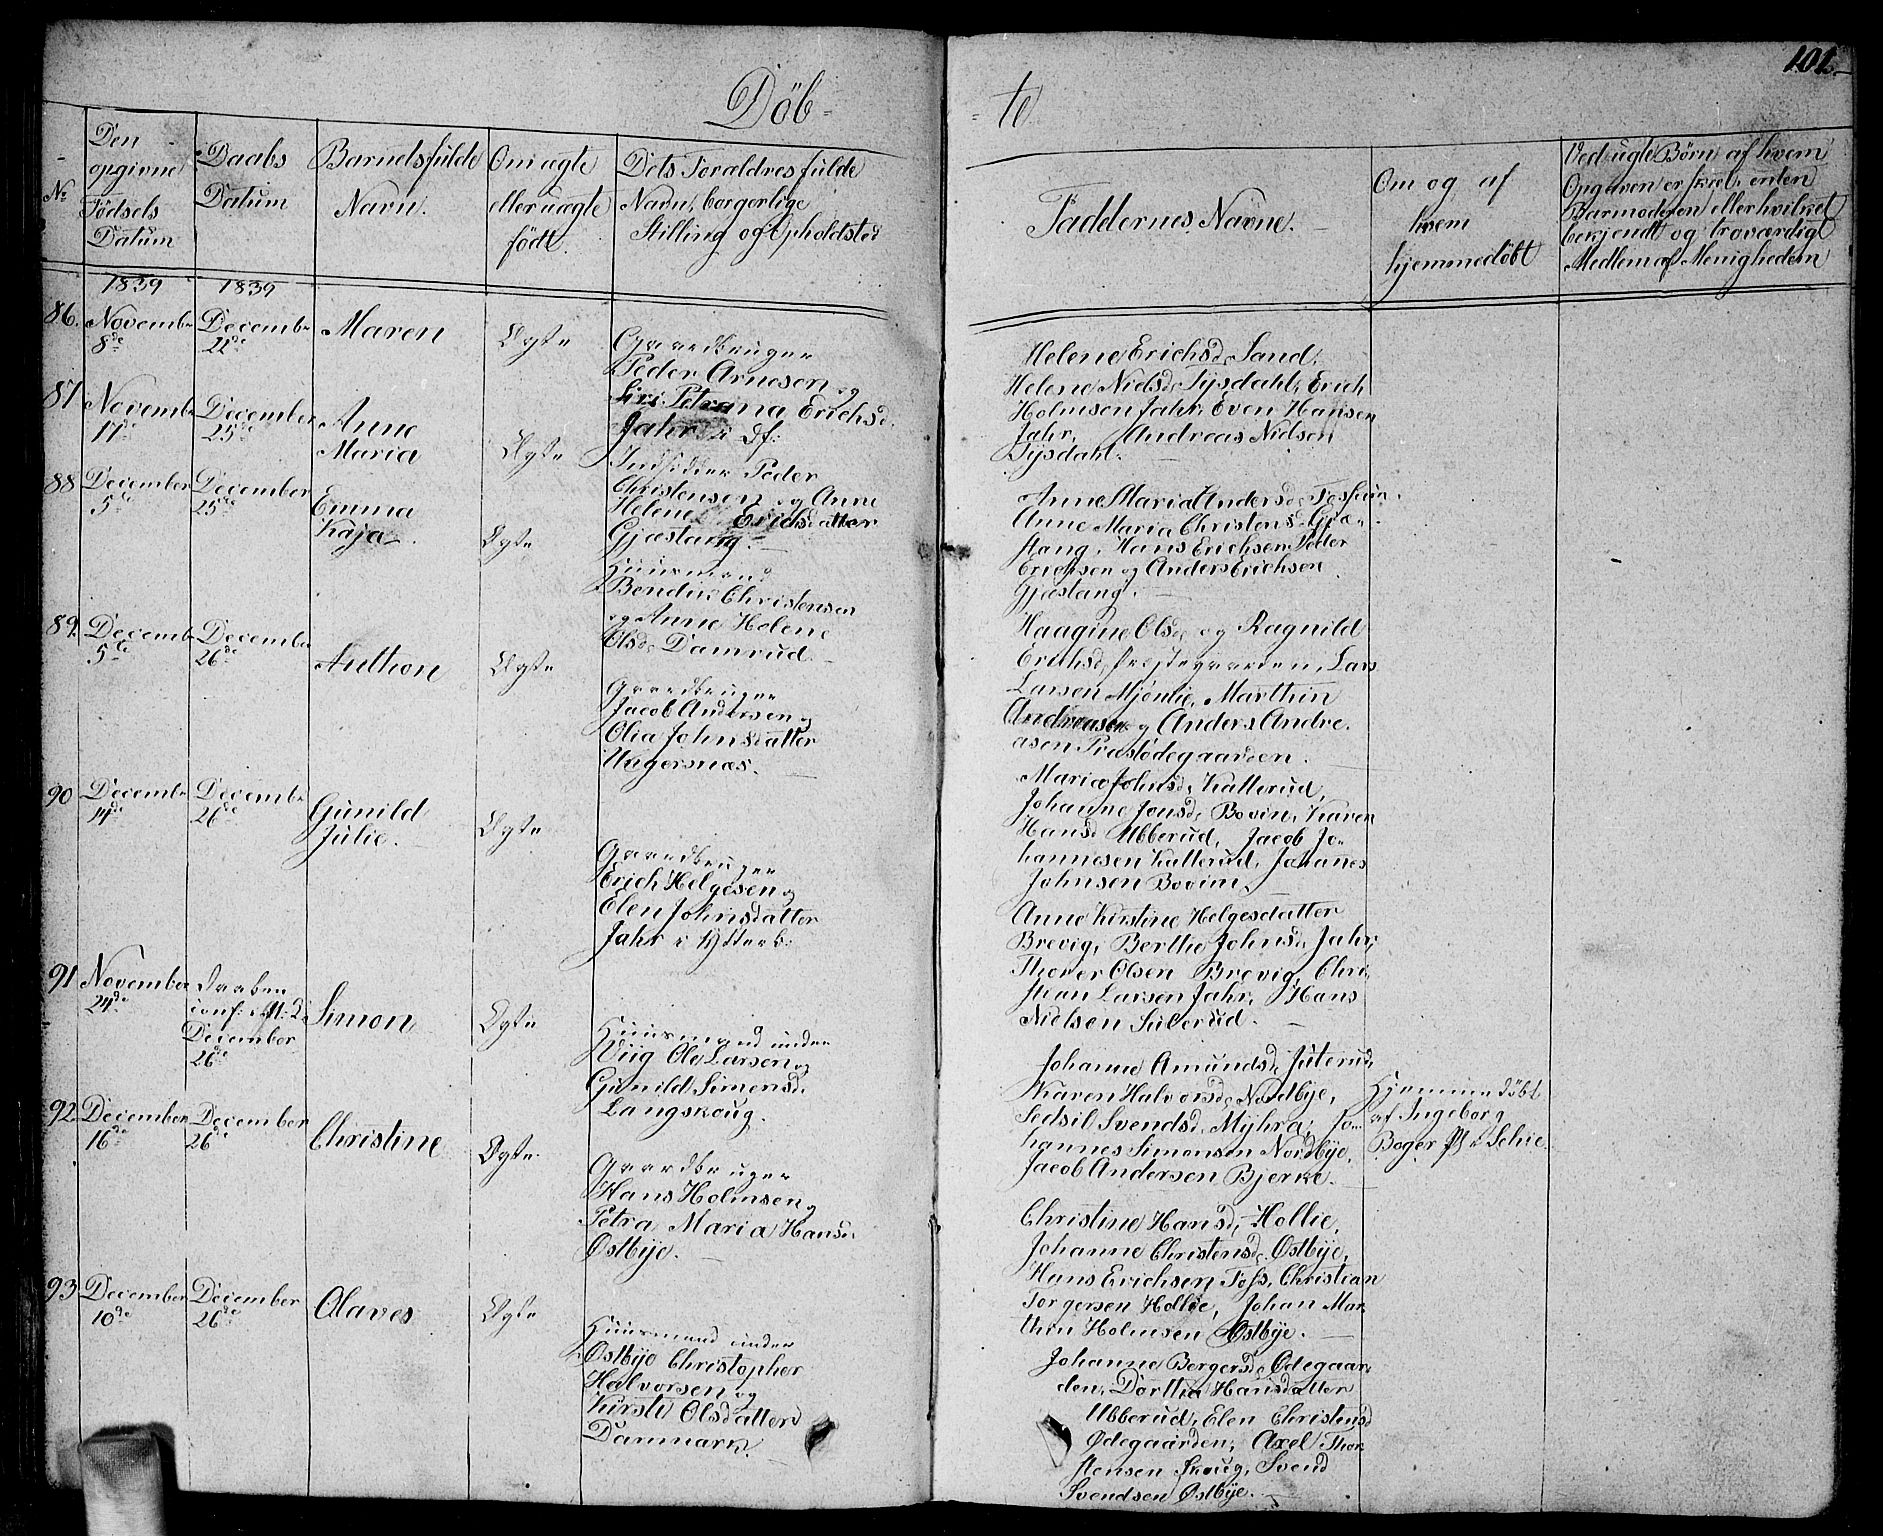 101.
Döb-
-te
No
Den opgivne Fødsels Datum
Daabs Datum
Barnets fulde Navn.
Om ægte eller uægte født.
Dets Forældres fulde Navn, borgerlige Stilling og Opholdsted
Faddernes Navne.
Om og af hvem hjemmedøbt
Ved ugte Børn af hvem Opgaven er skeet, enten Barmoderen eller hvilket bekjendt og troværdigt Medlem af Menigheden
1839
1839
86.
November 8de
December 22de
Maren
Ægte
Gaardbruger
Peder Arnesen og
Siri Petrina Erichsd.
Jahr i Df:
Helene Erichsd. Sand,
Helene Nielsd. Tysdahl, Erich
Holmsen Jahr, Even Hansen
Jahr, Andreas Nielsen
Tysdahl.
87
November 17de
December 25de
Anne
Maria
Ægte
Indsidder Peder
Christensen og Anne
Helene Erichsdatter
Gjæstang.
Anne Maria Andersd.
Anne Maria Christensd. Gjæ-
stang, Hans Erichsen, Peder
Erichsen og Anders Erichsen
Gjæstang.
88
December 5te
December 25de
Emma
Kaja.
Ægte
Huusmand
Bendix Christensen
og Anne Helene
Olsd. Damrud.
Haagine Olsd. og Ragnild
Erichsd. Prestegaarden, Lars
Larsen Mjønlie, Marthin
Andreasen og Anders Andre-
asen Præstødegaarden.
89.
December 5te
December 26de
Anthon
Ægte
Gaardbruger
Jacob Andersen og
Olia Johnsdatter
Ungersnæs.
Maria Johnsd. Katterud,
Johanne Jonsd. Bovin, Karen
Hansd Ubberud, Jacob Jo-
hannesen Katterud, Johanes
Johnsen Bovim.
90
December 14de
December 26de
Gunild
Julie.
Ægte
Gaardbruger
Erich Helgesen og
Elen Johnsdatter
Jahr i Ytterb:
Anne Kirstine Helgesdatter
Brevig, Berthe Johnsd. Jahr,
Thorer Olsen Brevig, Chri-
stian Larsen Jahr, Hans
Nielsen Sulerud.
91
November 24de
Daaben
conf:
December
26de
Simon
Ægte
Huusmand under
Wiig Ole Larsen og
Gunild Simensd.
Langskoug.
Johanne Amundsd. Juterud,
Karen Halvorsd. Nordbye,
Sedsil Svendsd. Myhra, Jo-
hannes Simonsen Nordbye,
Jacob Andersen Bjerke.
Hjemmedøbt
af Ingeborg
Boger Pl. Schie.
92.
December 16de
December 26de
Christine
Ægte
Gaardbruger
Hans Holmsen og
Petra Maria Hansd.
Østbye.
Christine Hansd. Hollie,
Johanne Christensd. Østbye,
Hans Erichsen Foss, Christian
Torgersen Hollie, Johan Mar-
thin Holmsen Østbye.
93
December 10de
December 26de
Olaves
Ægte
Huusmand under
Østbye Christopher
Halvorsen og
Kirsti Olsdatter
Danmark.
Johanne Bergersd. Ødegaar-
den, Dorthea Hansdatter
Ubberud, Elen Christensd
Ødegaarden, Axel Thor-
stensen Skoug, Svend
Svendsen Østbye.